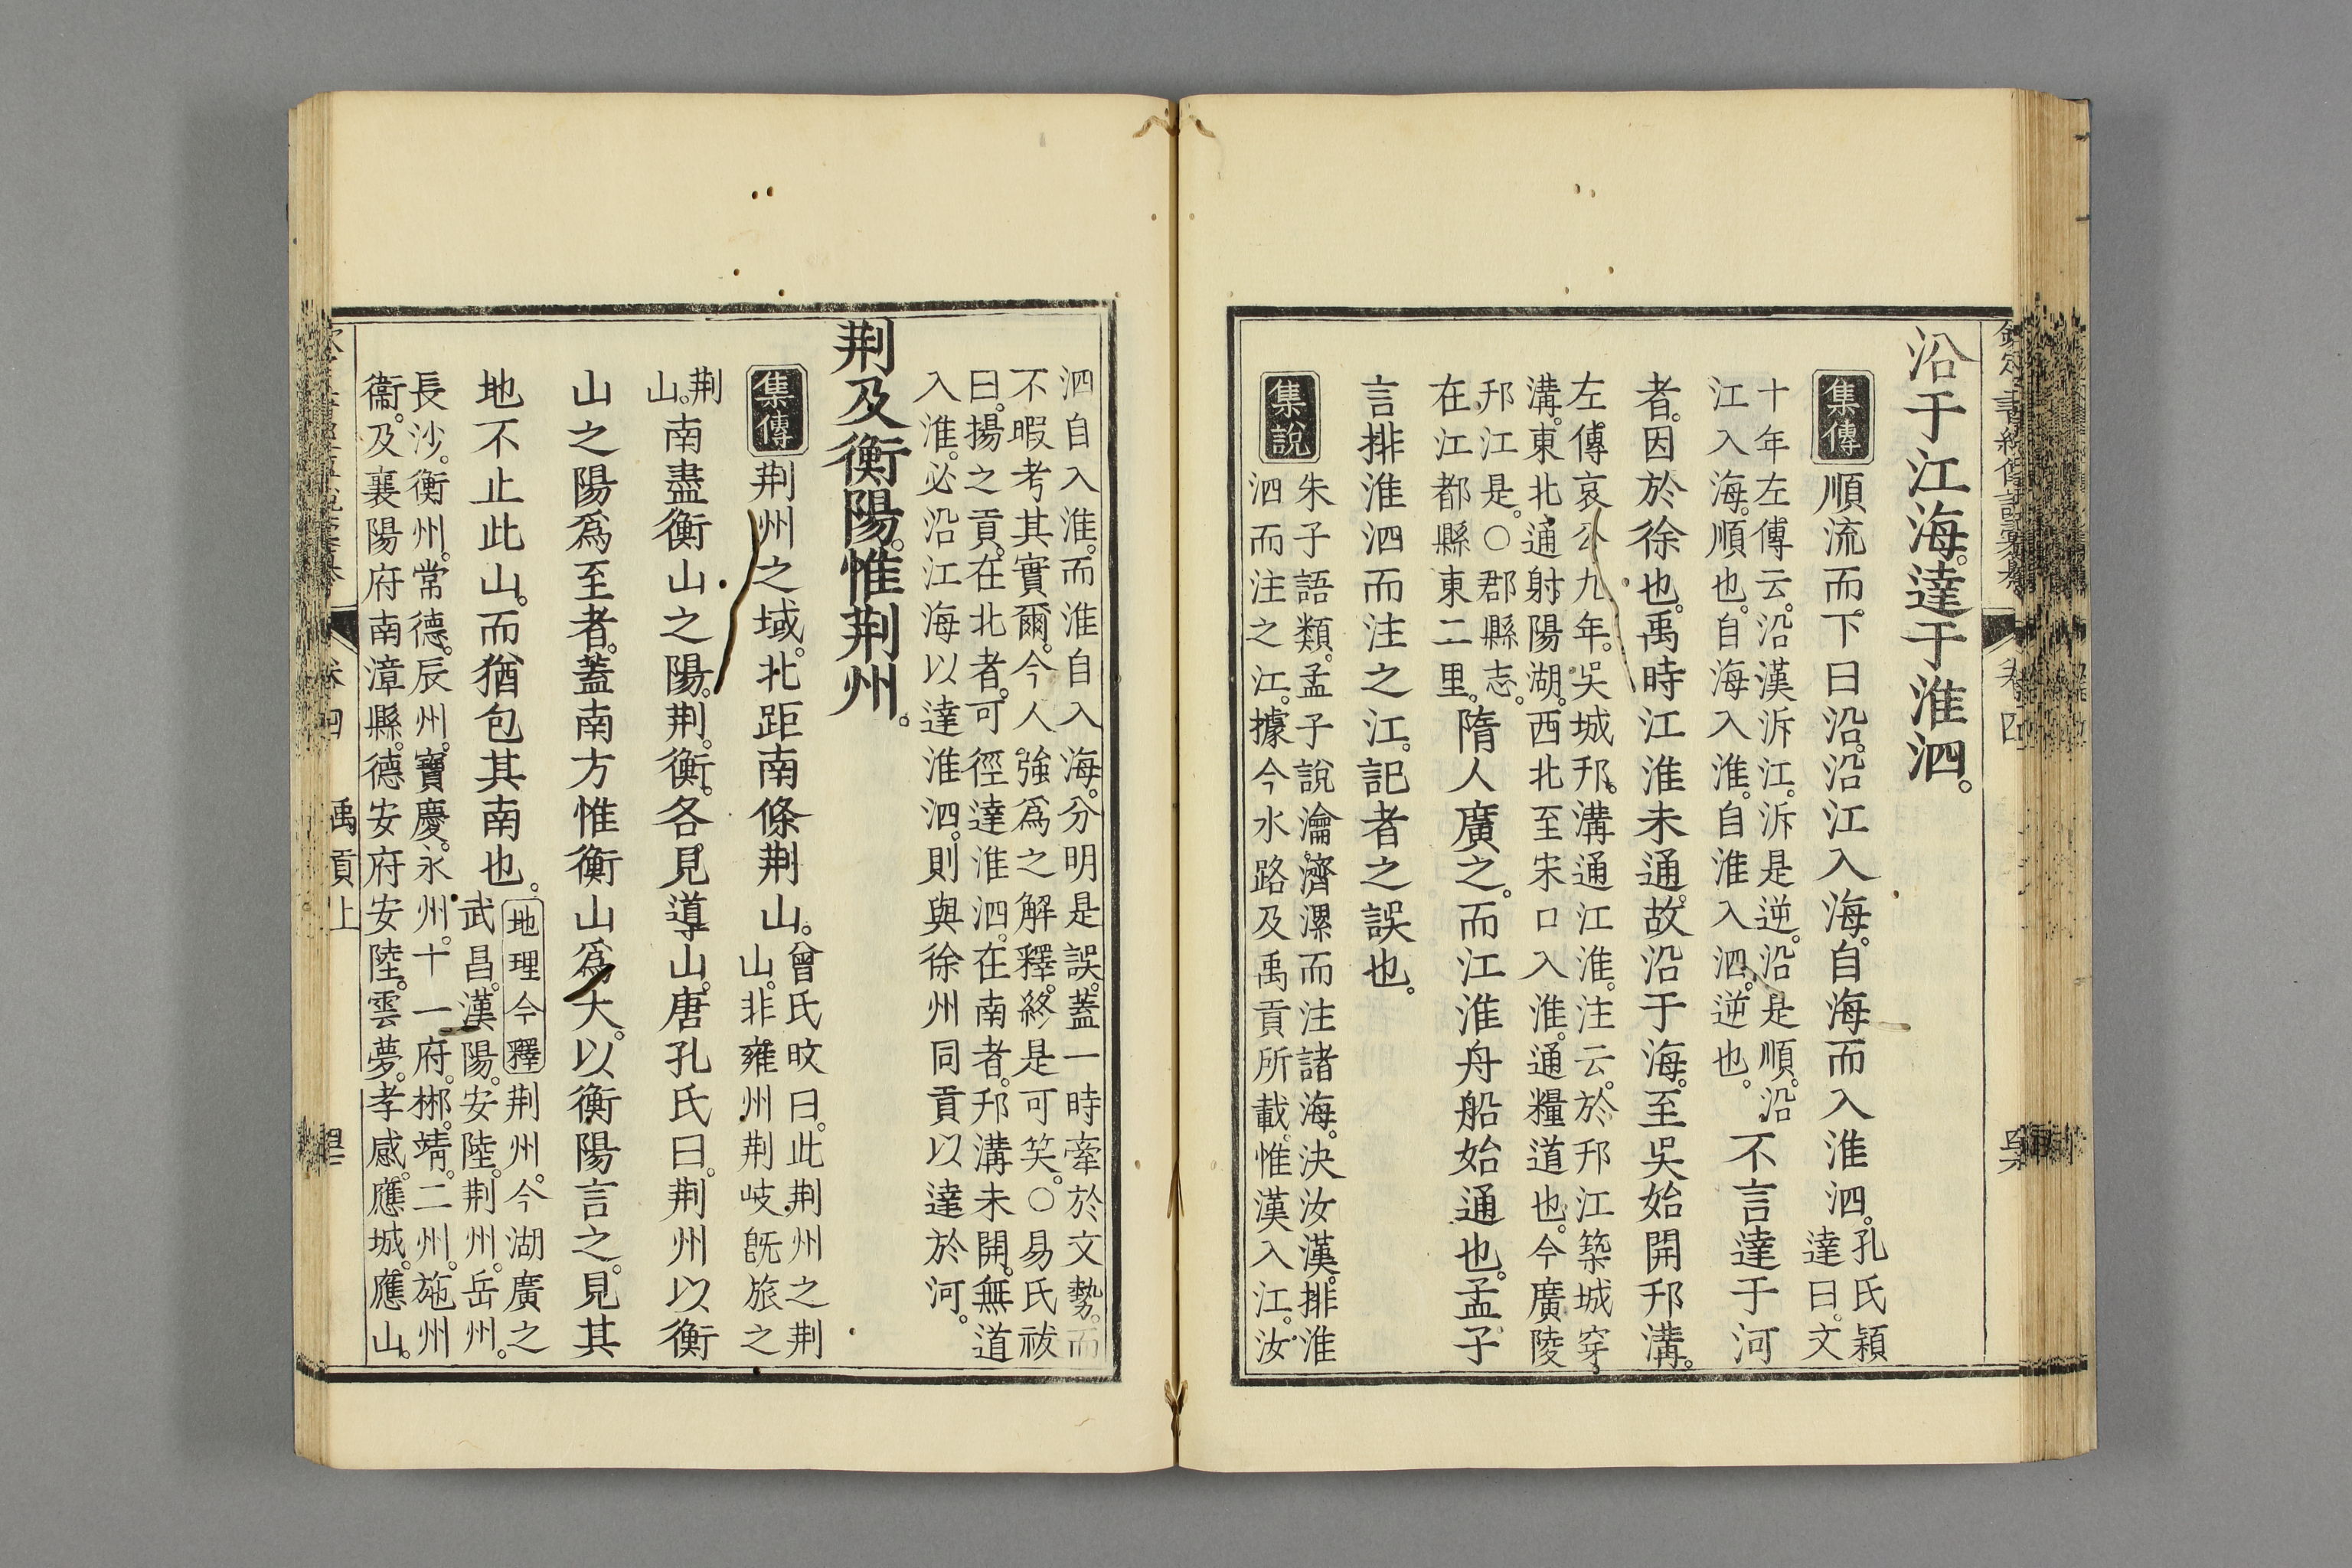 沿于江海。達于淮泗。
集傳
順流而下曰沿。沿江入海。自海而入淮泗。
孔氏穎
達曰。文
十年左傳云。沿漢泝江。泝是逆。沿是順。沿
江入海。順也。自海入淮。自淮入泗。逆也。
不言達于河
者。因於徐也。禹時江淮未通。故沿于海。至吳始開邗溝。
左傳哀公九年。吳城邗。溝通江淮。注云。於邗江築城穿
溝。東北通射陽湖。西北至宋口入淮。通糧道也。今廣陵
邗江是。○郡縣志。
在江都縣東二里。
隋人廣之。而江淮舟船始通也。孟子
言排淮泗而注之江。記者之誤也。
集說
朱子語類。孟子說瀹濟漯而注諸海。決汝漢。排淮
泗而注之江。據今水路及禹貢所載。惟漢入江。汝
泗自入淮。而淮自入海。分明是誤。蓋一時牽於文勢。而
不暇考其實爾。今人強爲之解釋。終是可笑。○易氏祓
曰。揚之貢。在北者。可徑達淮泗。在南者。邗溝未開。無道
入淮。必沿江海以達淮泗。則與徐州同貢以達於河。
荆及衡陽。惟荆州。
集傳
荆州之域。北距南條荆山。
曾氏旼曰。此荆州之荆
山。非雍州荆岐旣旅之
荆
山。
南盡衡山之陽。荆。衡。各見導山。唐孔氏曰。荆州以衡
山之陽爲至者。蓋南方惟衡山爲大。以衡陽言之。見其
地不止此山。而猶包其南也。
地理今釋
荆州。今湖廣之
武昌。漢陽。安陸。荆州。岳州。
長沙。衡州。常德。辰州。寶慶。永州。十一府。郴。靖。二州。施州
衞。及襄陽府南漳縣。德安府安陸。雲夢。孝感。應城。應山。
卷四
禹貢上